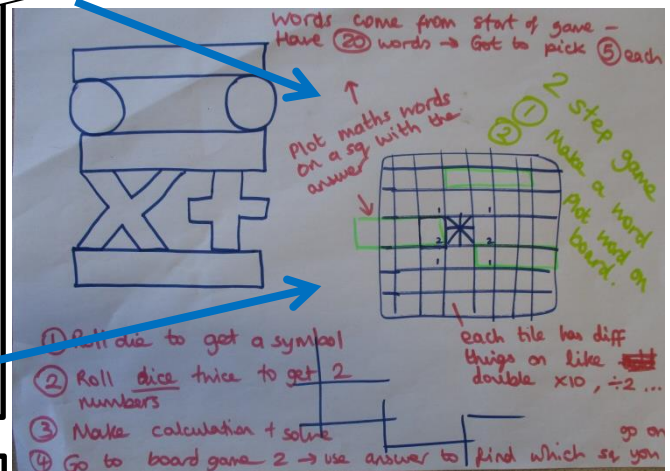 words come from start of game -
Have 20 words → Got to pick 5 each
Plot maths words
on a sq with the
answer
2 step game
① Make a word
② Plot word on
board.
1 1
2 2
1 1
each tile has diff
thigs on like
double x10, ÷2 ...
① Roll die to get a symbol
② Roll dice twice to get 2
numbers
③ Make calculation + solve
go on
④ Go to board game 2 → use answer to find which sq you